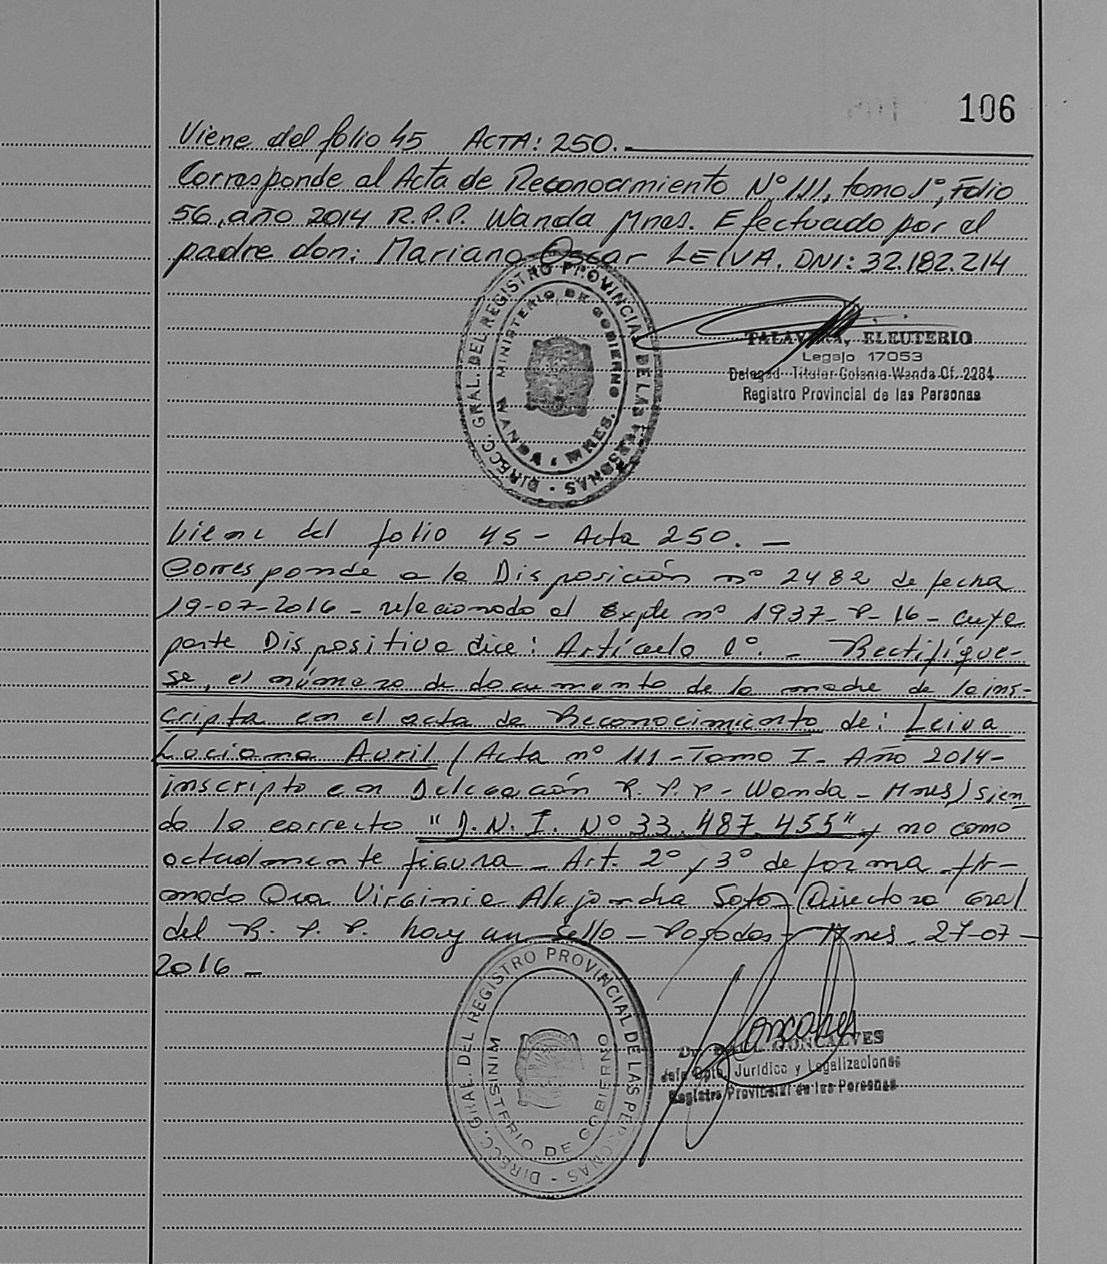 106
Viene del folio 45 ACTA: 250.
Corresponde al Acta de Reconocimiento Nº 111, tomo 1º, Folio
56, año 2014 R.P.P. Wanda Mnes. Efectuado por el
padre don: Mariano Oscar LEIVA. DNI: 32.182.214
DIRECC. GRAL. DEL REGISTRO PROVINCIAL DE LAS PERSONAS
MINISTERIO DE GOBIERNO
WANDA, MNES.
TALAVERA, ELEUTERIO
Legajo 17053
Delegad. Titular Colonia Wanda Of. 2284
Registro Provincial de las Personas
Viene del folio 45 - Acta 250. -
Corresponde a la Disposición nº 2482 de fecha
19-07-2016 - relacionado al Expte nº 1937-P-16- cuya
parte Dispositiva dice: Artículo 1º. - Rectifíque-
se, el número de documento de la madre de la ins-
cripta en el acta de Reconocimiento de: Leiva
Luciana Avril / Acta nº 111 - Tomo I - Año 2014-
inscripto en Delegación R.P.P - Wanda - Mnes / sien
do lo correcto "D.N.I. Nº 33.487.455" y no como
actualmente figura - Art. 2º y 3º de forma - fir-
mado Dra Virginia Alejandra Soto - Directora Gral
del R.P.P. hay un sello - Posadas - Mnes. 27-07-
2016 -
DIRECC. GRAL. DEL REGISTRO PROVINCIAL DE LAS PERSONAS
MINISTERIO DE GOBIERNO
Goncalves
GONCALVES
Jefe Dpto. Jurídico y Legalizaciones
Registro Provincial de las Personas